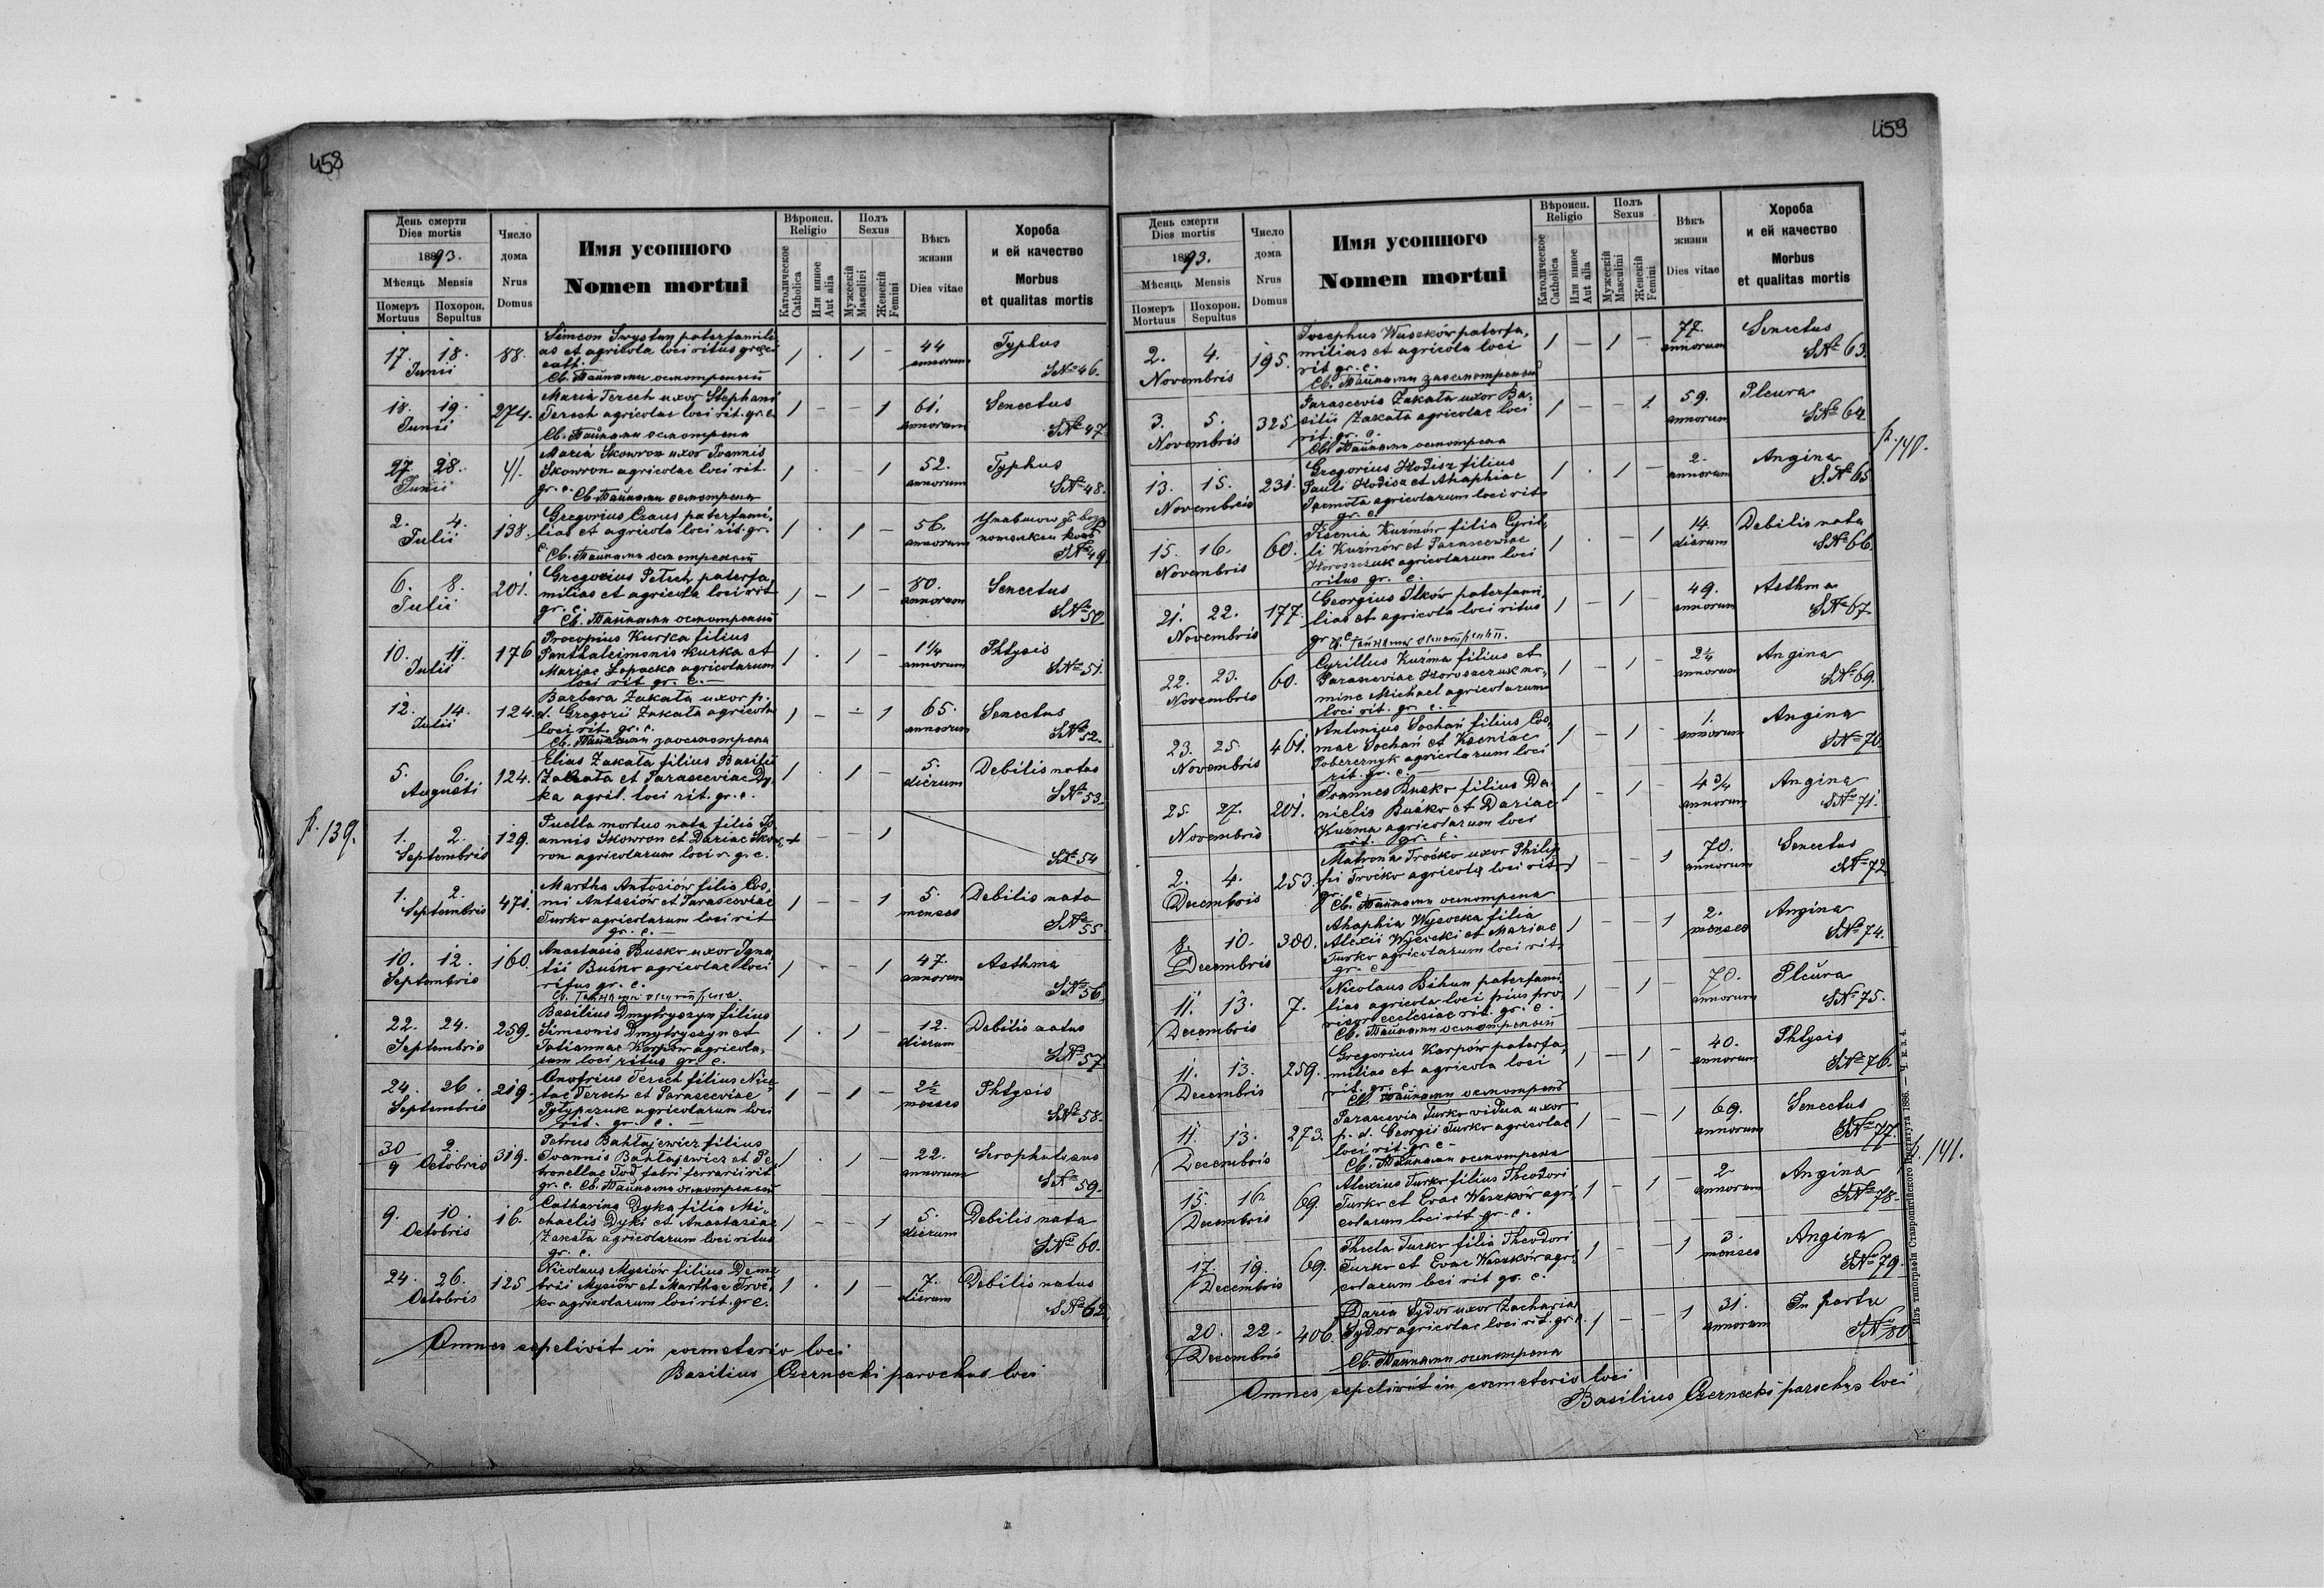 458
День смерти
Dies mortis
1893.
Мѣсяць Mensis
Померъ Mortuus
Похорон. Sepultus
Число дома
Nrus Domus
Имя усопшого
Nomen mortui
Вѣроисп. Religio
Католическое Catholica
Или инное Aut alia
Полъ Sexus
Мужескій Masculini
Женскій Femini
Вѣкъ жизни
Dies vitae
Хороба и ей качество
Morbus et qualitas mortis
17. 18. Junii 88. Simeon Swystun paterfamili
as et agricola loci ritus graeci
cath.
Св. Тайнами осмотреный
1 . 1 - 44 annorum Typhus S№ 46.
18. 19. Junii 274. Maria Terech uxor Stephani
Terech agricolae loci rit. gr. c.
Св. Тайнами осмотрена
1 - - 1 61. annorum Senectus S№ 47.
27. 28. Junii 41. Maria Skowron uxor Joannis
Skowron agricolae loci rit.
gr. c. Св. Тайнами осмотрена
1 . - 1 52. annorum Typhus S№ 48.
2. 4. Julii 138. Gregorius Czaus paterfami,
lias et agricola loci rit. gr.
c. Св. Тайнами осмотреный
1 . 1 - 56. annorum S№ 49.
6. 8. Julii 201. Gregorius Petech paterfa,
milias et agricola loci rit
gr. c.
Св. Тайнами осмотреный
1 - 1 - 80. annorum Senectus S№ 50.
10. 11. Julii 176 Procopius Kurka filius
Panthaleimonis Kurka et
Mariae Łopacka agricolarum
loci rit gr. c. -
1 . 1 - 1 1/4 annorum Phtysis S№ 51.
12. 14. Julii 124. Barbara Zakała uxor p.
d. Gregorii Zakała agricola
loci rit. gr. c.
Св. Тайнами заосмотрена
1 - - 1 65. annorum Senectus S№ 52.
5. 6. Augusti 124. Elias Zakała filius Basilii
Zakała et Parasceviae Dy,
ka agril. loci rit. gr. c.
1 . 1 - 5. dierum Debilis natus S№ 53.
p. 139.
1. 2. Septembris 129. Puella mortuo nata filia Jo
annis Skowron et Dariae Skow,
ron agricolarum loci r. gr. c.
+ - - 1 S№ 54
1. 2. Septembris 471. Martha Antosiów filia Cos,
mi Antosiów et Parasceviae
Turko agricolarum loci rit
gr. c. -
1 - - 1 5. menses Debilis nata S№ 55.
10. 12. Septembris 160. Anastasia Busko uxor Igna
tii Buśko agricolae loci
ritus gr. c.
Св. Тайнами осмотрена.
1 - - 1 47. annorum Asthma S№ 56.
22. 24. Septembris 259. Basilius Dmytryszyn filius
Simeonis Dmytryszyn et
Tatiannae Karpów agricola,
rum loci ritus gr. c.
1 . 1 - 12. dierum Debilis natus S№ 57.
24. 26. Septembris 219. Onofrius Terech filius Nice
tae Terech et Parasceviae
Pyłypczuk agricolarum loci
rit. gr. c. -
1 - 1 - 2 1/2 menses Phtysis S№ 58.
30/9 2. Octobris 319. Petrus Bahłajewicz filius
Joannis Bahłajewicz et Pe
tronellae Tod fabri ferrarii rit
gr. c. Св. Тайнами осмотреный
1 . 1 - 22. annorum S№ 59.
9. 10. Octobris 16. Catharina Dyka filia Mi,
chaelis Dyki et Anastaziae
Zakała agricolarum loci ritus
gr. c.
1 - - 1 5. dierum Debilis nata S№ 60.
24. 26. Octobris 125 Nicolaus Mysiów filius Deme
trii Mysiów et Marthae Troć,
ko agricolarum loci rit. gr c.
1 . 1 - 7. dierum Debilis natus S№ 62.
Omnes sepelivit in coemeterio loci
Basilius Czernecki parochus loci
459
День смерти
Dies mortis
1893.
Мѣсяць Mensis
Померъ Mortuus
Похорон. Sepultus
Число дома
Nrus Domus
Имя усопшого
Nomen mortui
Вѣроисп. Religio
Католическое Catholica
Или инное Aut alia
Полъ Sexus
Мужескій Masculini
Женскій Femini
Вѣкъ жизни
Dies vitae
Хороба и ей качество
Morbus et qualitas mortis
2. 4. Novembris 195. Josephus Waszków paterfa,
milias et agricola loci
rit gr. c.
Св. Тайнами заосмотреный
1 - 1 - 77. annorum Senectus S№ 63.
3. 5. Novembris 325 Parascevia Zakała uxor Ba,
silii Zakała agricolae loci
rit. gr. c.
Св. Тайнами осмотрена
1 - - 1 59. annorum Pleura S№ 64.
p. 140.
13. 15. Novembris 231. Gregorius Hodisz filius
Pauli Hodisz et Ahaphiae
Jarmoła agricolarum loci rit.
gr. c.
1 . 1 - 2. annorum Angina S.№ 65
15. 16. Novembris 60. Ksenia Kuźmów filia Cyril,
li Kuźmów et Parasceviae
Horoszczuk agricolarum loci
ritus gr. c.
1 . - 1 14. dierum Debilis nata S№ 66.
21. 22. Novembris 177. Georgius Ilków paterfami,
lias et agricola loci ritus
gr c.
Св. Тайнами осмотреный.
1 - 1 - 49. annorum Asthma S№ 67.
22. 23. Novembris 60. Cyrillus Kuźma filius et
Parasceviae Horoszczuk no,
mine Michael agricolarum
loci rit. gr. c. -
1 - 1 - 2 1/4 annorum Angina S№ 69.
23. 25. Novembris 461. Antonius Sochań filius Cos,
mae Sochań et Kseniae
Pobereznyk agricolarum loci
rit. gr. c. -
1 - 1 - 1. annorum Angina S№ 70.
25. 27. Novembris 201. Joannes Busko filius Da,
nielis Buśko et Dariae
Kuźma agricolarum loci
rit. gr. c.
1 - 1 - 4 3/4 annorum Angina S№ 71.
2. 4. Decembris 253. Matrona Troćko uxor Philip
pi Troćko agricola loci rit.
gr. c.
Св. Тайнами осмотрена
1 - - 1 70. annorum Senectus S№ 72
8. 10. Decembris 300. Ahaphia Wysocka filia
Alexii Wysocki et Mariae
Turko agricolarum loci rit.
gr. c.
1 - - 1 2. menses Angina S№ 74.
11. 13. Decembris 7. Nicolaus Bihun paterfami
lias agricola loci
ecclesiae rit. gr. c.
Св. Тайнами осмотреный
1 - 1 - 70. annorum Pleura S№ 75.
11. 13. Decembris 259. Gregorius Karpów paterfa,
milias et agricola loci
rit. gr. c.
Св. Тайнами осмотрены
1 - 1 - 40. annorum Phtysis S№ 76.
11. 13. Decembris 273. Parascevia Turko vidua uxor
p. d. Georgii Turko agricolae
loci rit. gr. c -
Св. Тайнами осмотрена
1 - - 1 69. annorum Senectus S№ 77.
p. 141.
15. 16. Decembris 69. Alexius Turko filius Theodori
Turko et Evae Waszków agri,
colarum loci rit gr. c.
1 - 1 - 2 annorum Angina S№ 78.
17. 19. Decembris 69. Thecla Turko filia Theodori
Turko et Evae Waszków agri,
colarum loci rit gr. c.
1 - - 1 3. menses Angina S№ 79.
20. 22. Decembris 406. Daria Sydor uxor Zachariae
Sydor agricolae loci rit. gr. c.
Св. Тайнами осмотрена
1 - - 1 31. annorum In partu S№ 80
Omnes sepelivit in coemeterio loci
Basilius Czernecki parochus loci
Изъ типографіи Ставропигійского Института 1886. — Ч. к. з. 4.